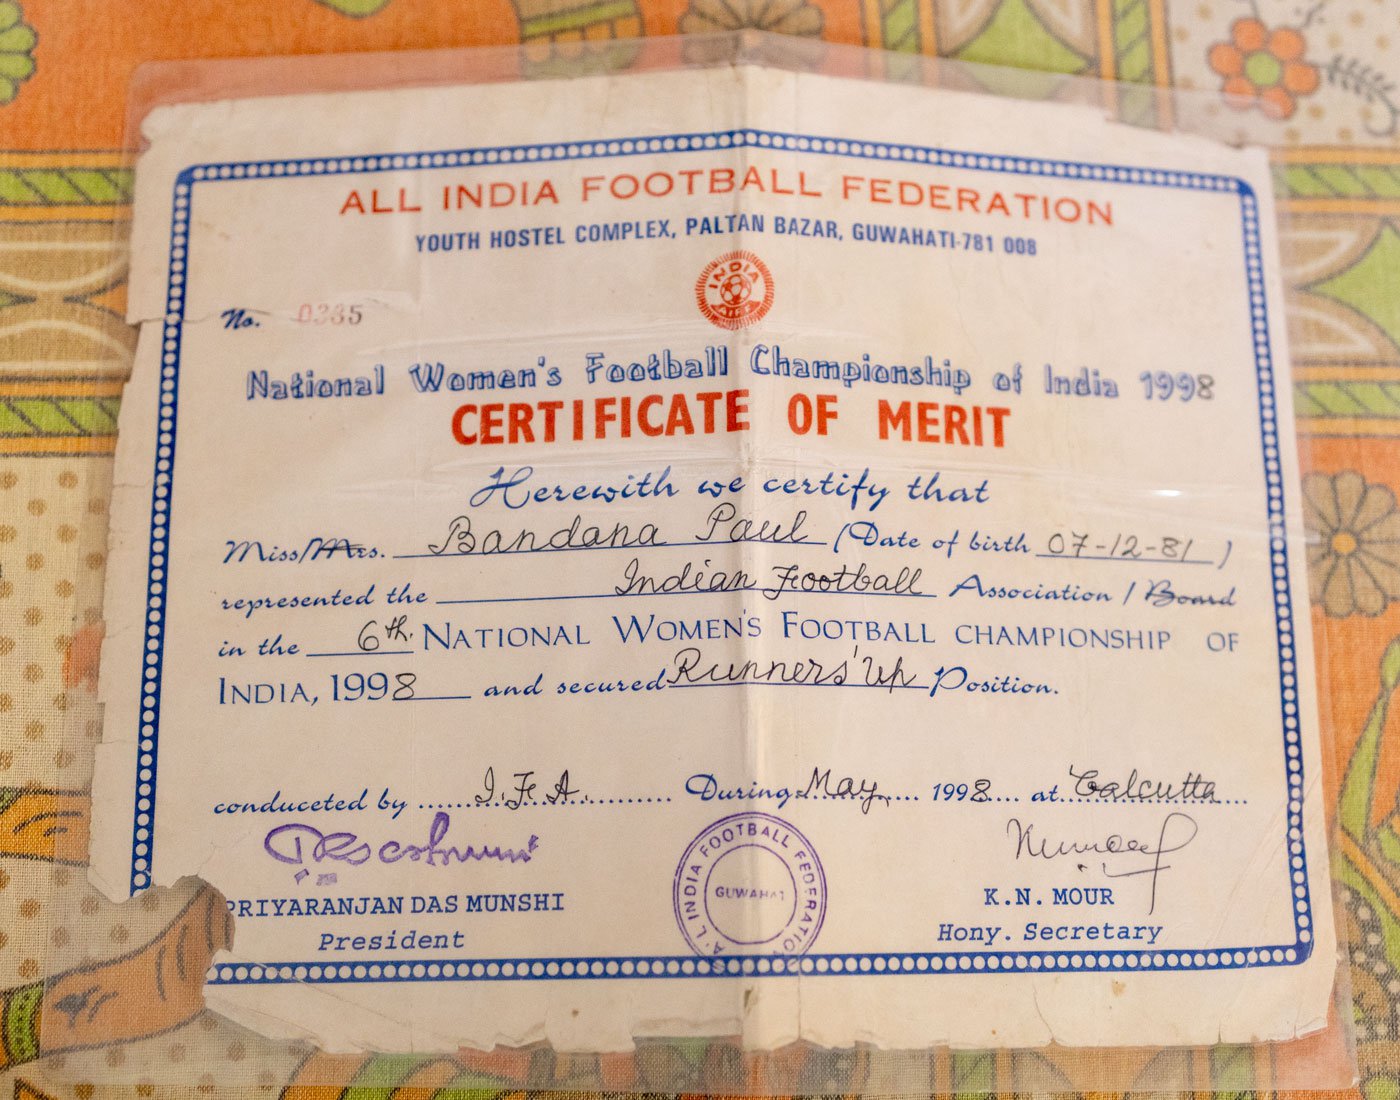 ALL INDIA FOOTBALL FEDERATION
YOUTH HOSTEL COMPLEX, PALTAN BAZAR, GUWAHATI-781 008
INDIA
AIFF
No. 0385
National Women's Football Championship of India 1998
CERTIFICATE OF MERIT
Herewith we certify that
Miss/Mrs. Bandana Paul (Date of birth 07-12-81)
represented the Indian Football Association / Board
in the 6th. NATIONAL WOMEN'S FOOTBALL CHAMPIONSHIP OF
INDIA, 1998 and secured Runners' Up Position.
conduceted by ......I.F.A........... During May, .... 1998.... at..Calcutta....
PRIYARANJAN DAS MUNSHI
President
ALL INDIA FOOTBALL FEDERATION
GUWAHATI
K.N. MOUR
Hony. Secretary